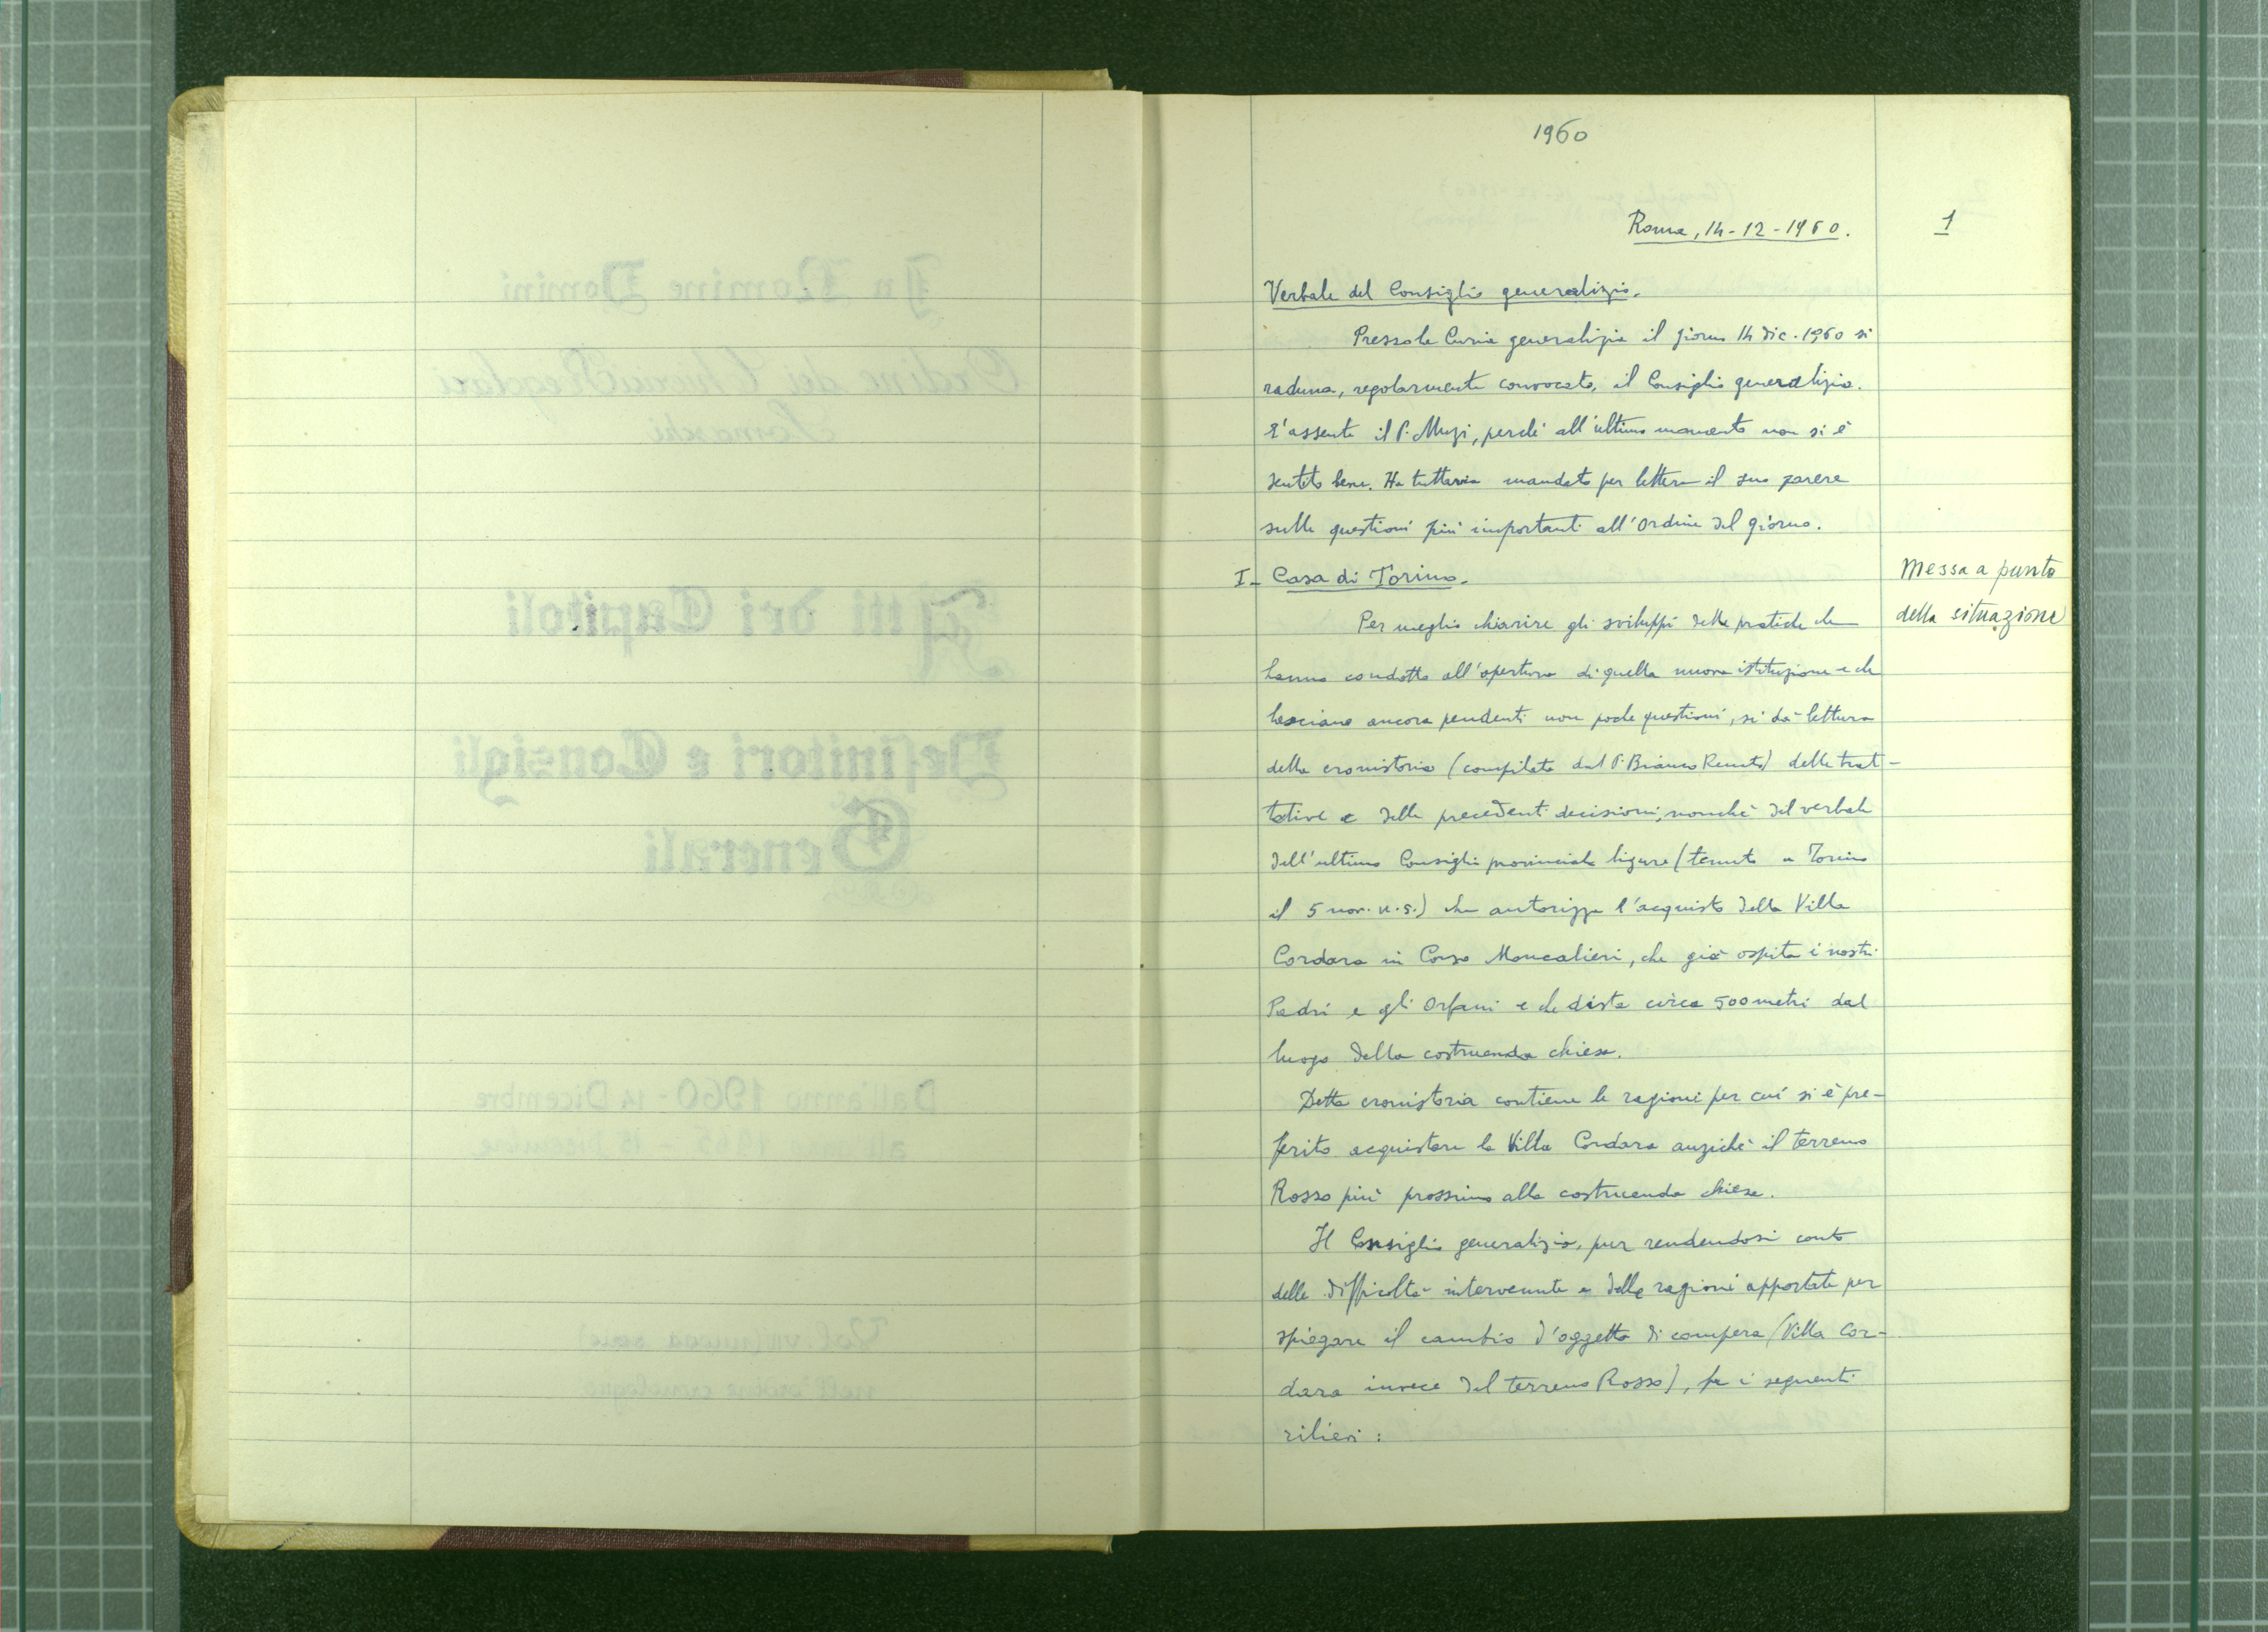 In Nomine Domini
Ordine dei Chierici Regolari
Somaschi
Atti dei Capitoli
Definitori e Consigli
Generali
Dall'anno 1960 - 14 Dicembre
all' 1963 - 15 Dicembre
1960
Roma, 14-12-1960.
1
Verbale del Consiglio generalizio.
Presso la Curia generalizia il giorno 14 dic. 1960 si
raduna, regolarmente convocato, il Consiglio generalizio.
E' assente il P. Muzi, perché all'ultimo momento non si è
sentito bene. Ha tuttavia mandato per lettera il suo parere
sulle questioni più importanti all'ordine del giorno.
I- Casa di Torino.
Messa a punto
della situazione
Per meglio chiarire gli sviluppi delle pratiche che
hanno condotto all'apertura di quella nuova istituzione e che
lasciano ancora pendenti non poche questioni, si dà lettura
della cronistoria (compilata dal P. Bianco Renato) delle trat-
tative e delle precedenti decisioni, nonchè del verbale
dell'ultimo Consiglio provinciale ligure (tenuto a Torino
il 5 nov. u.s.) che autorizza l'acquisto della Villa
Cordara in Corso Moncalieri, che già ospita i nostri
Padri e gli Orfani e che dista circa 500 metri dal
luogo della costruenda chiesa.
Detta cronistoria contiene le ragioni per cui si è pre-
ferito acquistare la Villa Cordara anzichè il terreno
Rosso più prossimo alla costruenda chiesa.
Il Consiglio generalizio, pur rendendosi conto
delle difficoltà intervenute e delle ragioni apportate per
spiegare il cambio d'oggetto di compera (Villa Cor-
dara invece del terreno Rosso), fa i seguenti
rilievi :